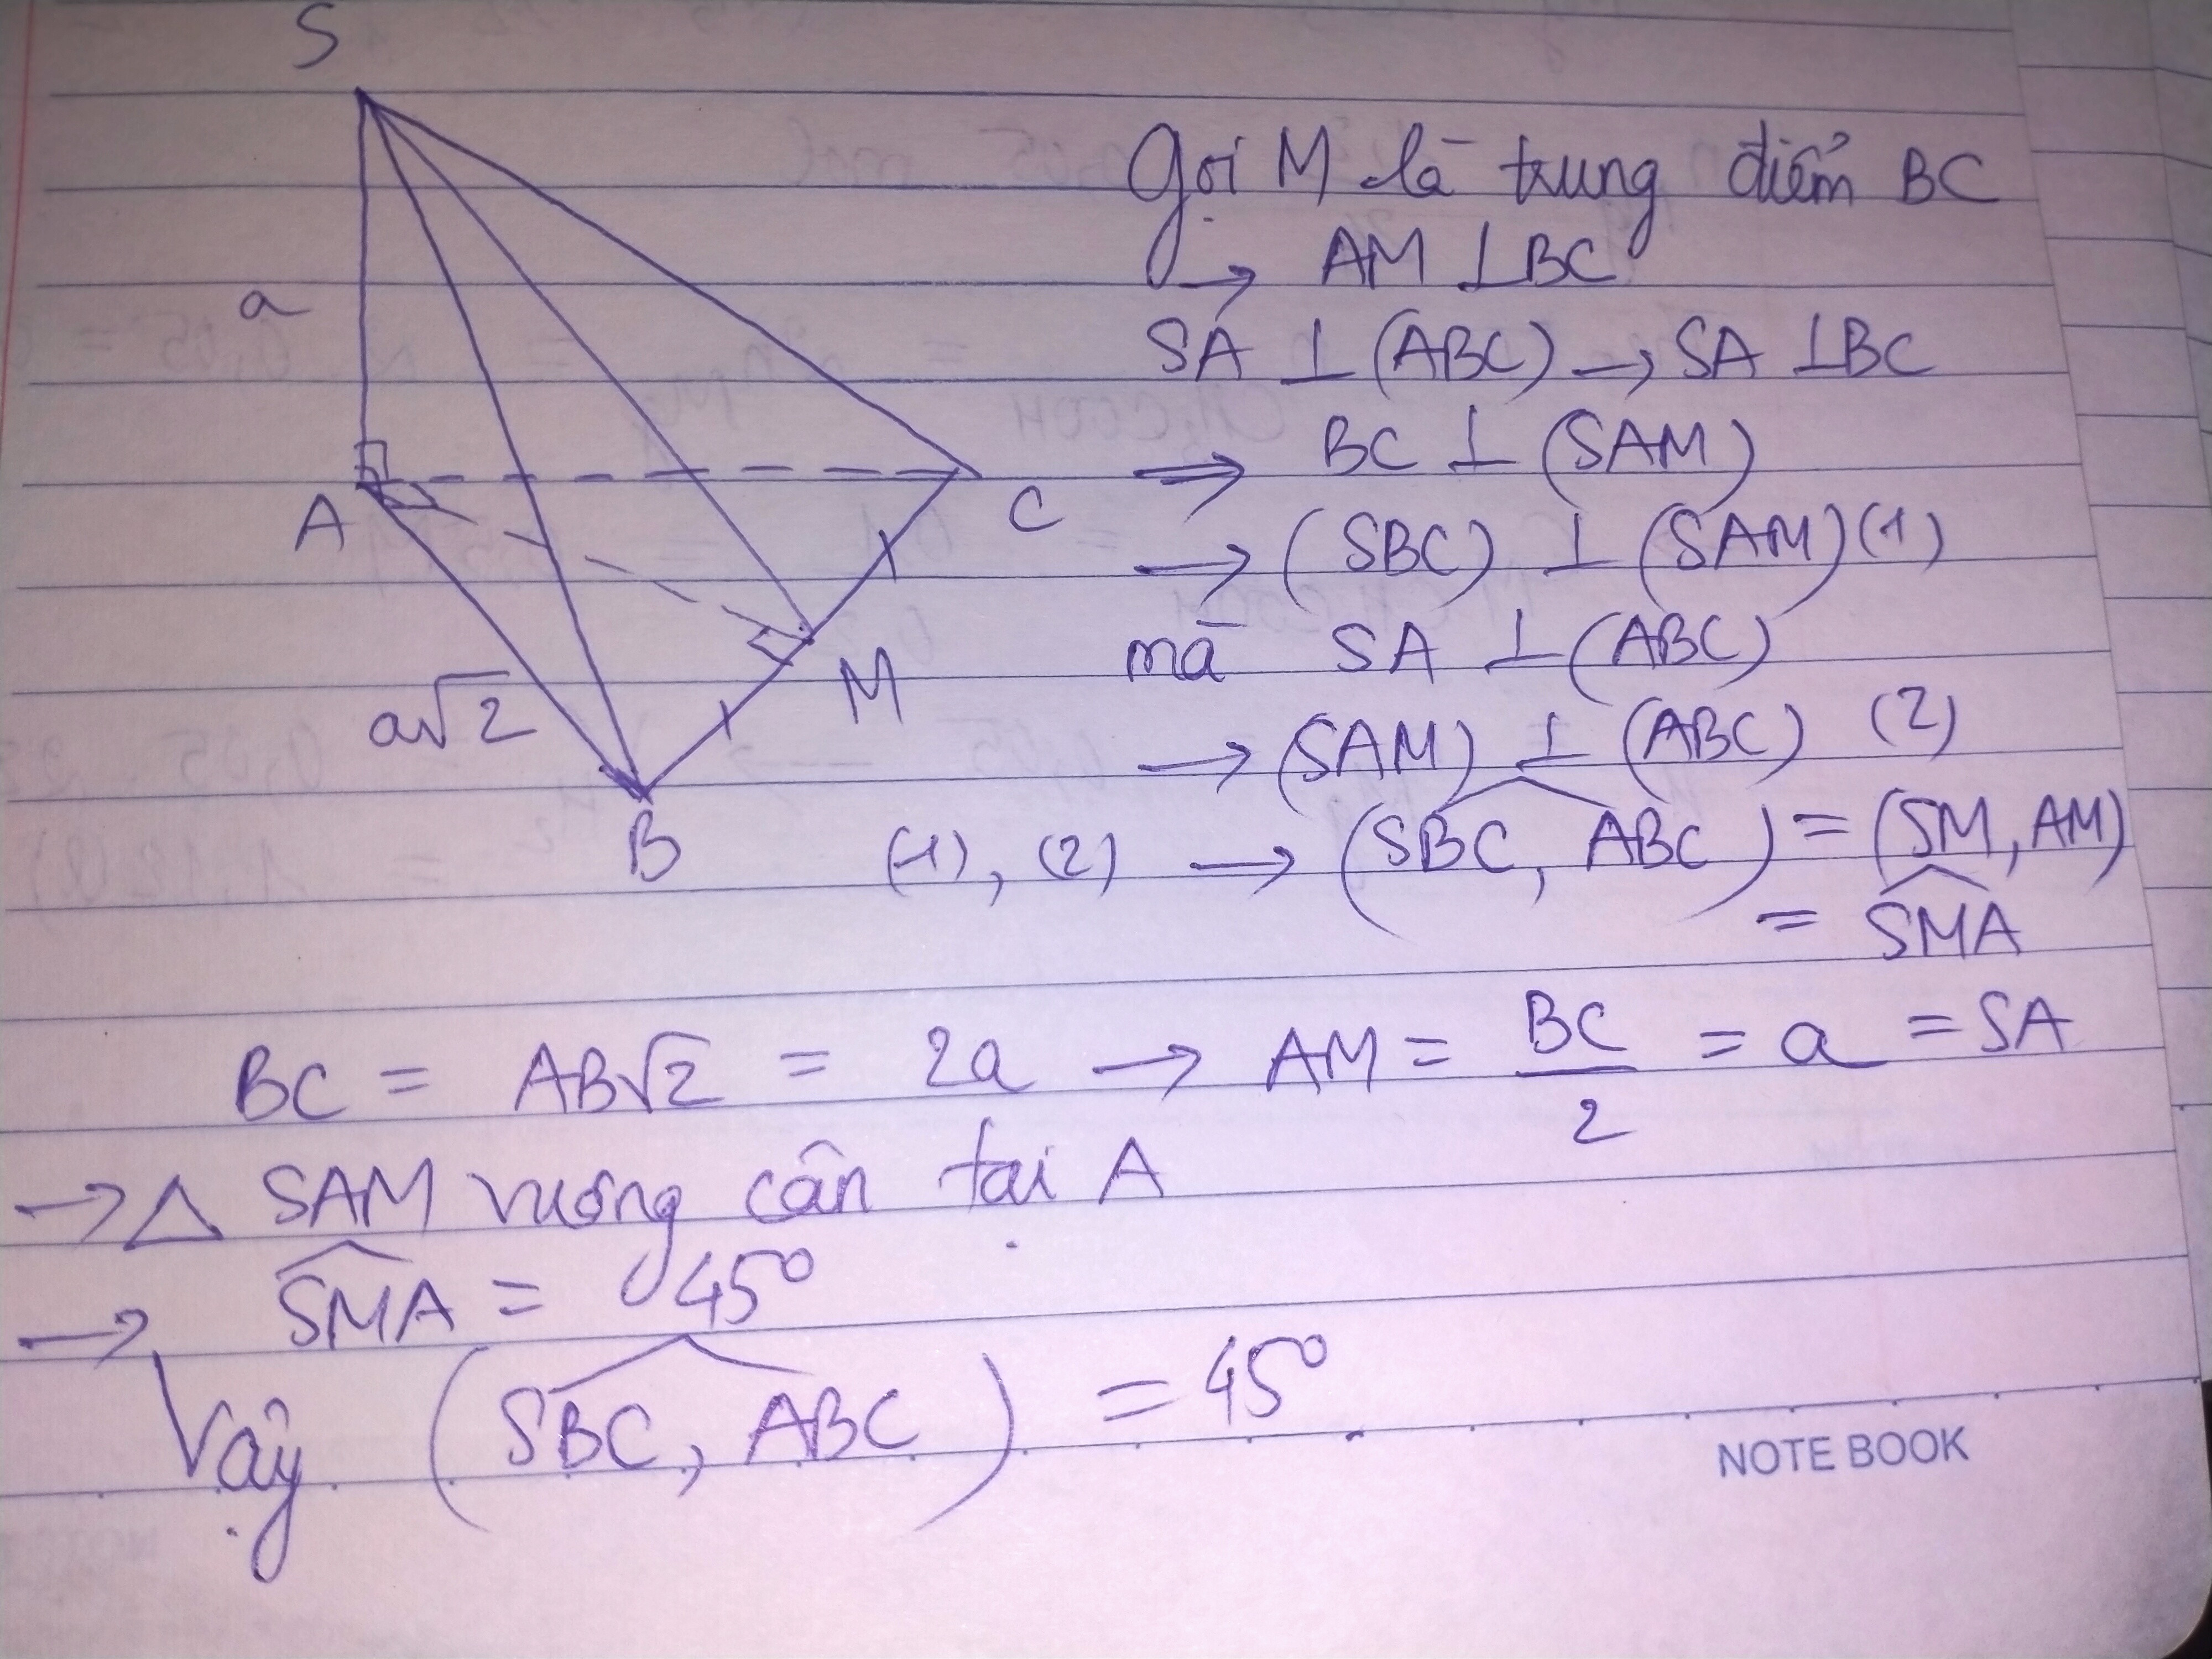 S
a
A
C
M
a√2
B
Gọi M là trung điểm BC
→ AM ⊥ BC
SA ⊥ (ABC) → SA ⊥ BC
⇒ BC ⊥ (SAM)
→ (SBC) ⊥ (SAM) (1)
mà SA ⊥ (ABC)
→ (SAM) ⊥ (ABC) (2)
(1), (2) → (SBC, ABC) = (SM, AM)
= SMA
BC = AB√2 = 2a → AM = BC/2 = a = SA
→ △ SAM vuông cân tại A
→ SMA = 45°
Vậy (SBC, ABC) = 45°
NOTE BOOK